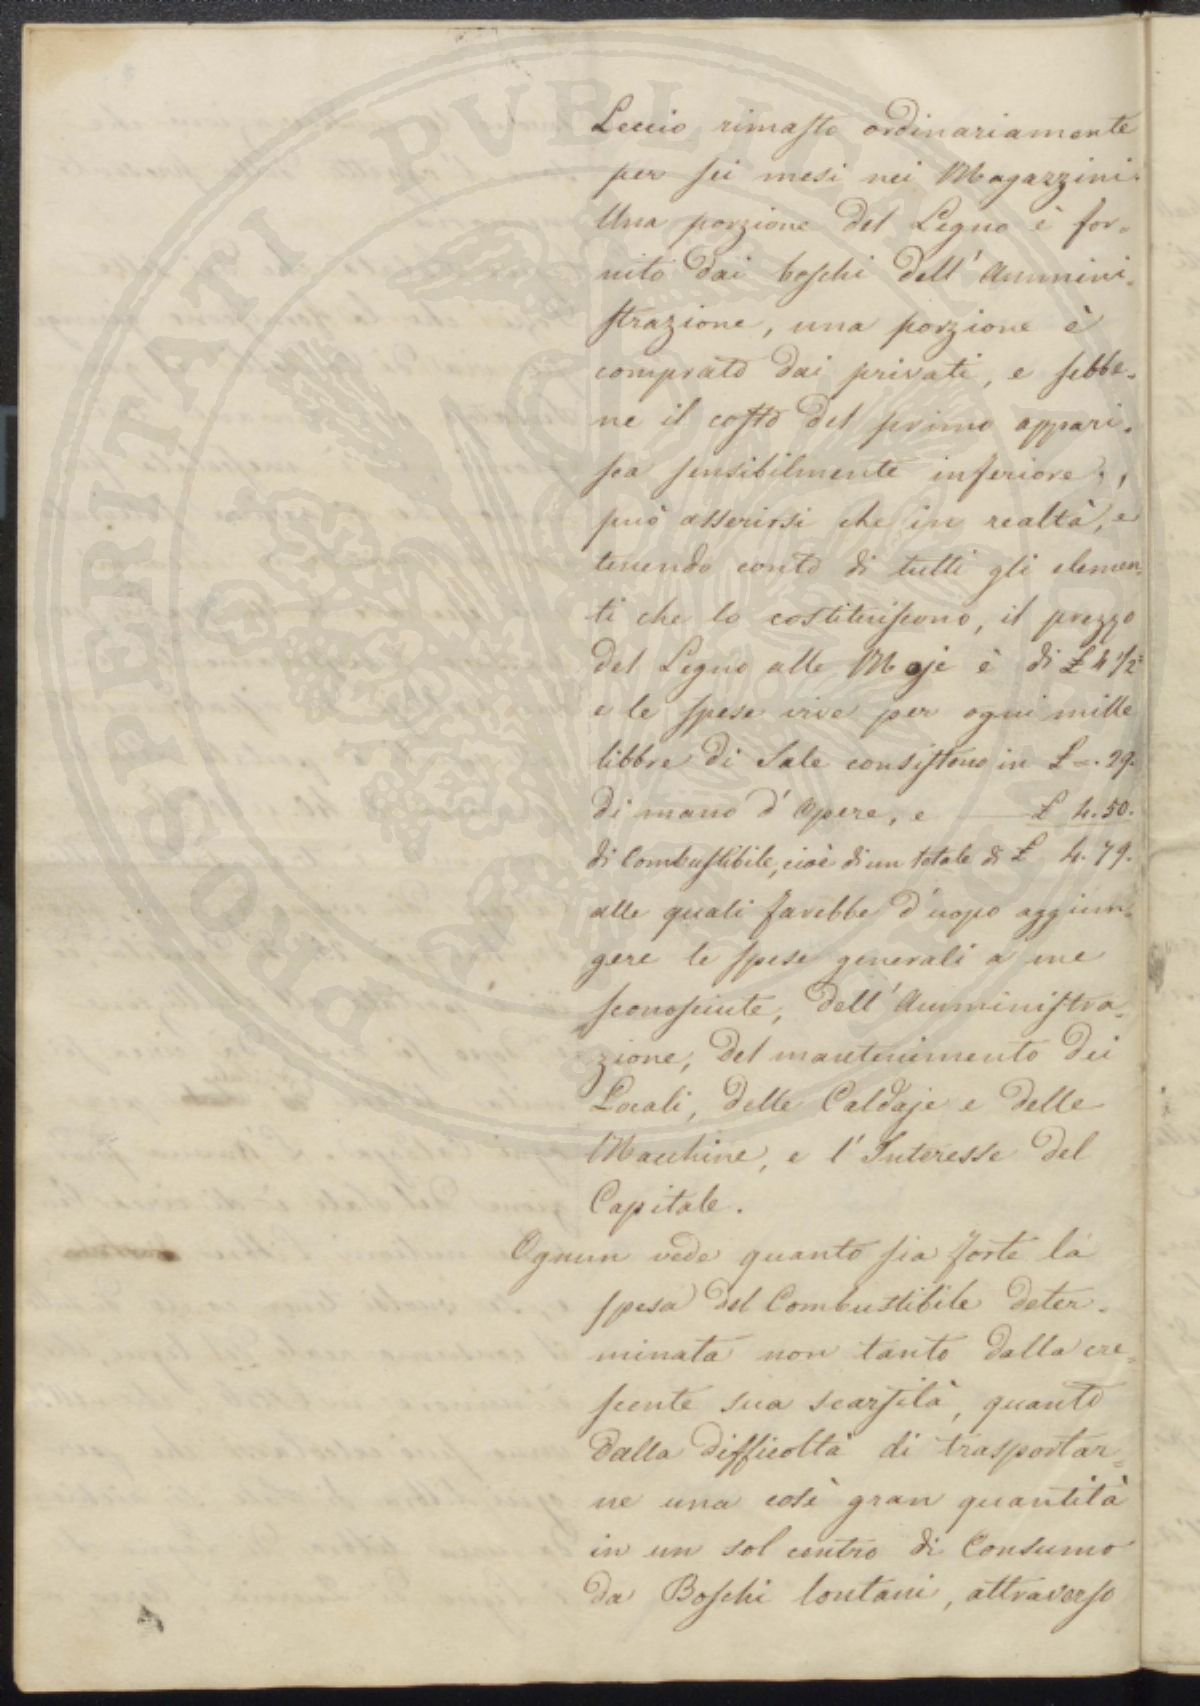 Leccio rimasto ordinariamente
per sei mesi nei Magazzini.
Una porzione del Legno è for=
nito dai boschi dell'Ammini=
strazione, una porzione è
comprato dai privati, e sebbe=
ne il costo del primo appari=
sca sensibilmente inferiore,
può asserirsi che in realtà, e
tenendo conto di tutti gli elemen=
ti che lo costituiscono, il prezzo
del Legno alle Moje è di £ 4 1/2
e le spese vive per ogni mille
libbre di Sale consistono in £ -. 29.
di mano d'Opere, e £ 4. 50.
di Combustibile, cioè di un totale di £ 4. 79.
alle quali farebbe d'uopo aggiun=
gere le spese generali a me
sconosciute, dell'Amministra=
zione, del mantenimento dei
Locali, delle Caldaje e delle
Macchine, e l'Interesse del
Capitale.
Ognun vede quanto sia forte la
spesa del Combustibile deter=
minata non tanto dalla cre=
scente sua scarsità, quanto
dalla difficoltà di trasportar=
ne una così gran quantità
in un sol centro di Consumo
da Boschi lontani, attraverso
PROSPERITATI PUBLICAE